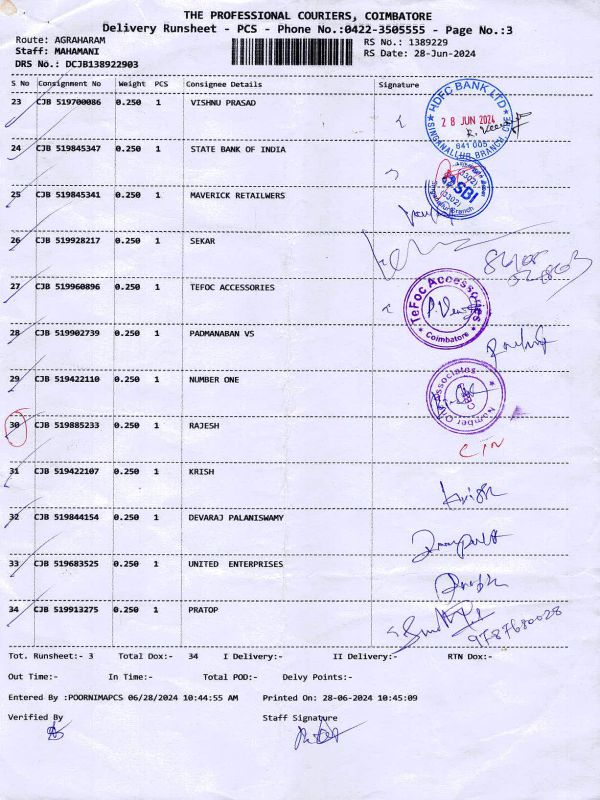 THE PROFESSIONAL COURIERS, COIMBATORE
Delivery Runsheet - PCS - Phone No.:0422-3505555 - Page No.:3
Route: AGRAHARAM RS No.: 1389229
Staff: MAHAMANI RS Date: 28-Jun-2024
DRS No.: DCJB138922903
S No Consignment No Weight PCS Consignee Details Signature
23 CJB 519700086 0.250 1 VISHNU PRASAD
HDFC BANK LTD
28 JUN 2024
641 005
SINGANALLUR BRANCH, CBE
24 CJB 519845347 0.250 1 STATE BANK OF INDIA
SBI
25 CJB 519845341 0.250 1 MAVERICK RETAILWERS
26 CJB 519928217 0.250 1 SEKAR
27 CJB 519960896 0.250 1 TEFOC ACCESSORIES
TeFoc Accessories
Coimbatore
28 CJB 519902739 0.250 1 PADMANABAN VS
29 CJB 519422110 0.250 1 NUMBER ONE
Number One Associates
30 CJB 519885233 0.250 1 RAJESH
CIN
31 CJB 519422107 0.250 1 KRISH
Krish
32 CJB 519844154 0.250 1 DEVARAJ PALANISWAMY
33 CJB 519683525 0.250 1 UNITED ENTERPRISES
34 CJB 519913275 0.250 1 PRATOP
9787680028
Tot. Runsheet:- 3 Total Dox:- 34 I Delivery:- II Delivery:- RTN Dox:-
Out Time:- In Time:- Total POD:- Delvy Points:-
Entered By :POORNIMAPCS 06/28/2024 10:44:55 AM Printed On: 28-06-2024 10:45:09
Verified By Staff Signature